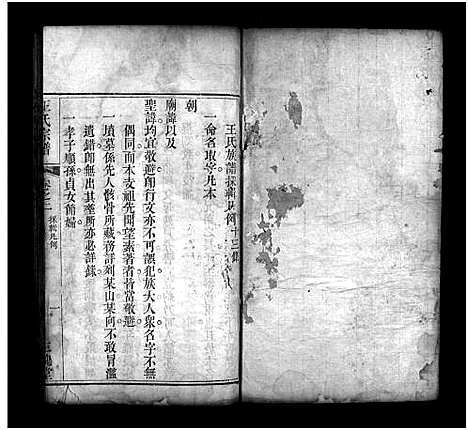 王氏族譜採輯凡例十三條
一命名取字凡本
朝
廟諱以及
聖諱均宜敬避即行文亦不可誤犯族大人衆名字不無
偶同而本支祖先聞望素著者皆當敬避
一墳墓係先人骸骨所藏務詳列某山某向不敢冒濫
遺錯即無出其塋所亦必詳錄
一孝子順孫貞女節婦
王氏宗譜
卷之一
採輯凡例
一
堂